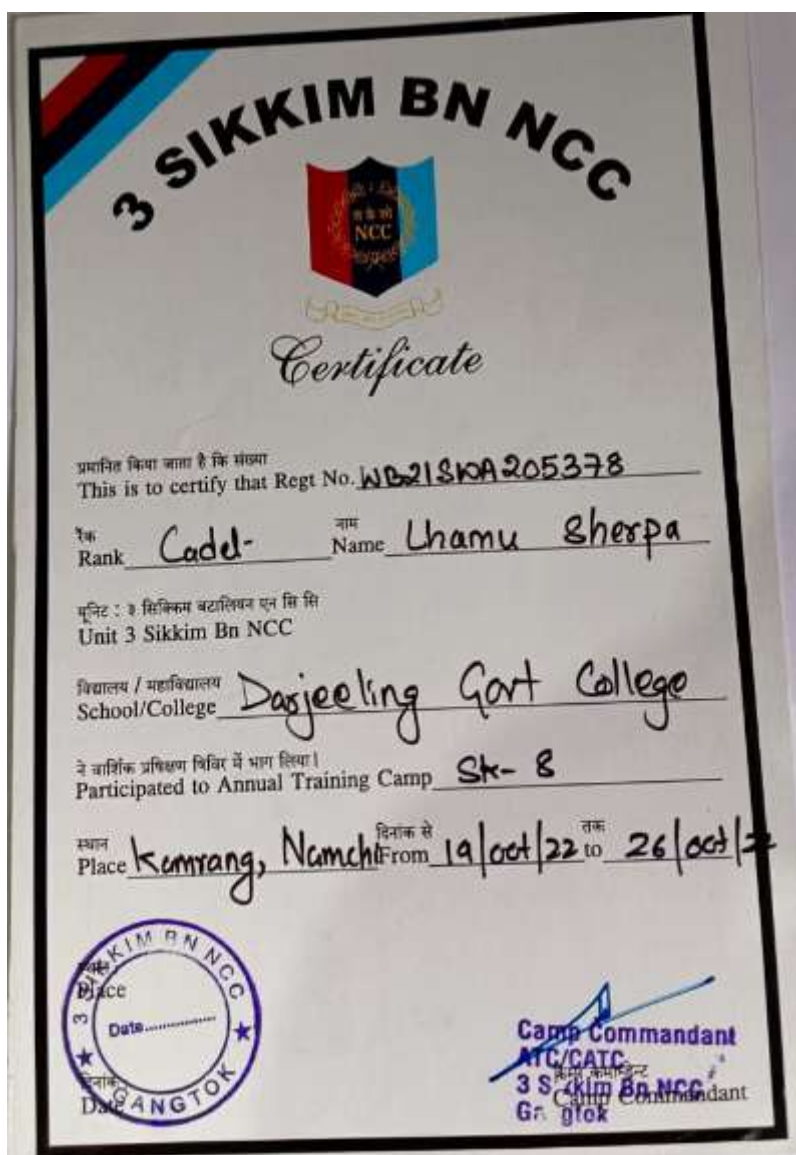 3 SIKKIM BN NCC
NCC
Certificate
प्रमानित किया जाता है कि संख्या
This is to certify that Regt No. WB21SWA205378
रैंक नाम
Rank Cadet Name Lhamu Sherpa
यूनिट : ३ सिक्किम बटालियन एन सि सि
Unit 3 Sikkim Bn NCC
विद्यालय / महाविद्यालय
School/College Darjeeling Govt College
ने वार्शिक प्रषिक्षण षिविर में भाग लिया।
Participated to Annual Training Camp SK-8
स्थान दिनांक से तक
Place Kamrang, Namchi From 19/oct/22 to 26/oct/22
3 SIKKIM BN NCC
Place
Date..............
दिनांक
Date
GANGTOK
Camp Commandant
ATC/CATC
कैम्प कमाण्डेन्ट
3 Sikkim Bn NCC
Camp Commandant
Gangtok